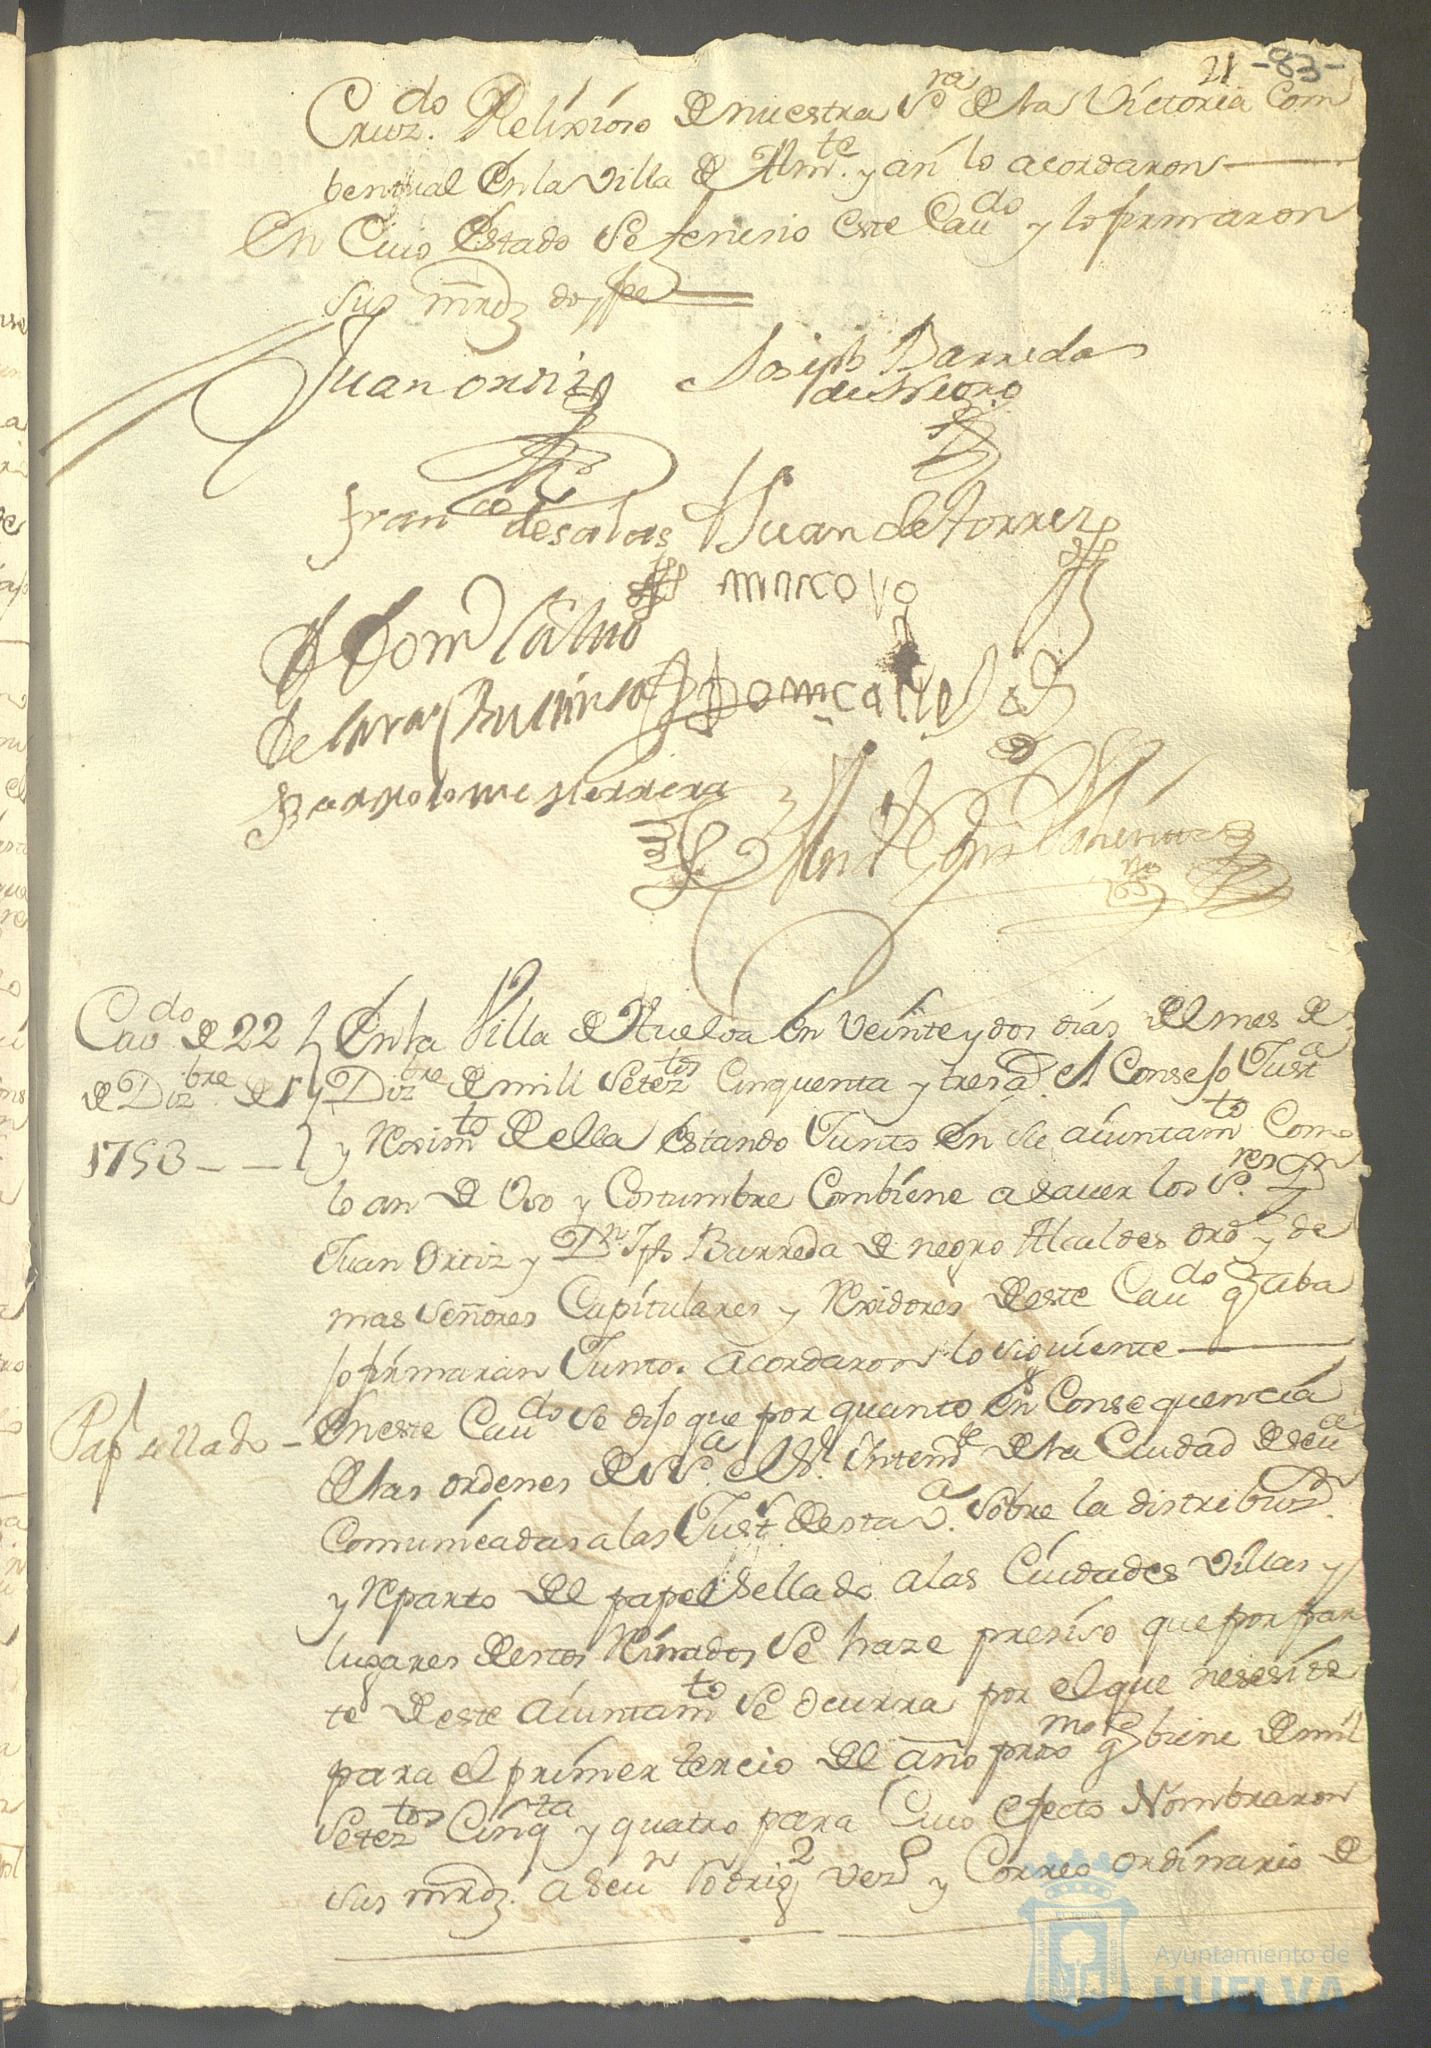 21 -83-
Cruz.do Relixioso de nuestra Sra de la Victoria Com
bentual en la Villa de Alm.te y asi lo acordaron
En Cuio estado se fenesio este Cau.do y lo firmaron
sus mrdz doy fee
Juan ortiz Joseph Barreda
de Negro
Fran.co de salas Juan de torres
D Dom Calvo
de lara
Bartolome Herrera
Cau.do de 22 En la Villa de Huelva en veinte y dos dias del mes de
de Diz.bre de Diz.bre de mill Setez.tos Cinquenta y tres a.s el Consejo Just.a
1753 y Rexim.to de ella estando Junto en su aiuntam.to Como
lo an de Uso y Costumbre Combiene a sauer los S.res Dn
Juan Ortiz y Dn Jph Barreda de negro Alcaldes ord.s y de
mas señores Capitulares y Rexidores de este Cau.do q aba
jo firmaran Junto. acordaron lo siguiente
Pap sellado - En este Cau.do se dijo que por quanto en Consequencia
de las ordenes de S.a el S.r intend.te de la Ciudad de seu.a
Comunicadas a las Just.s de esta V.a sobre la distribuz.n
y Reparto del papel sellado a las Ciudades Villas y
lugares de estos Reinados se haze presiso que por par
te de este aiuntam.to se ocurra por el que nesesite
para el primer tercio del año prox.mo q biene de mil
Setez.tos Cinq.ta y quatro para Cuio efecto Nombraron
sus mrdz. a Rodrig.z vez.o y Correo ordinario de
Ayuntamiento de
HUELVA